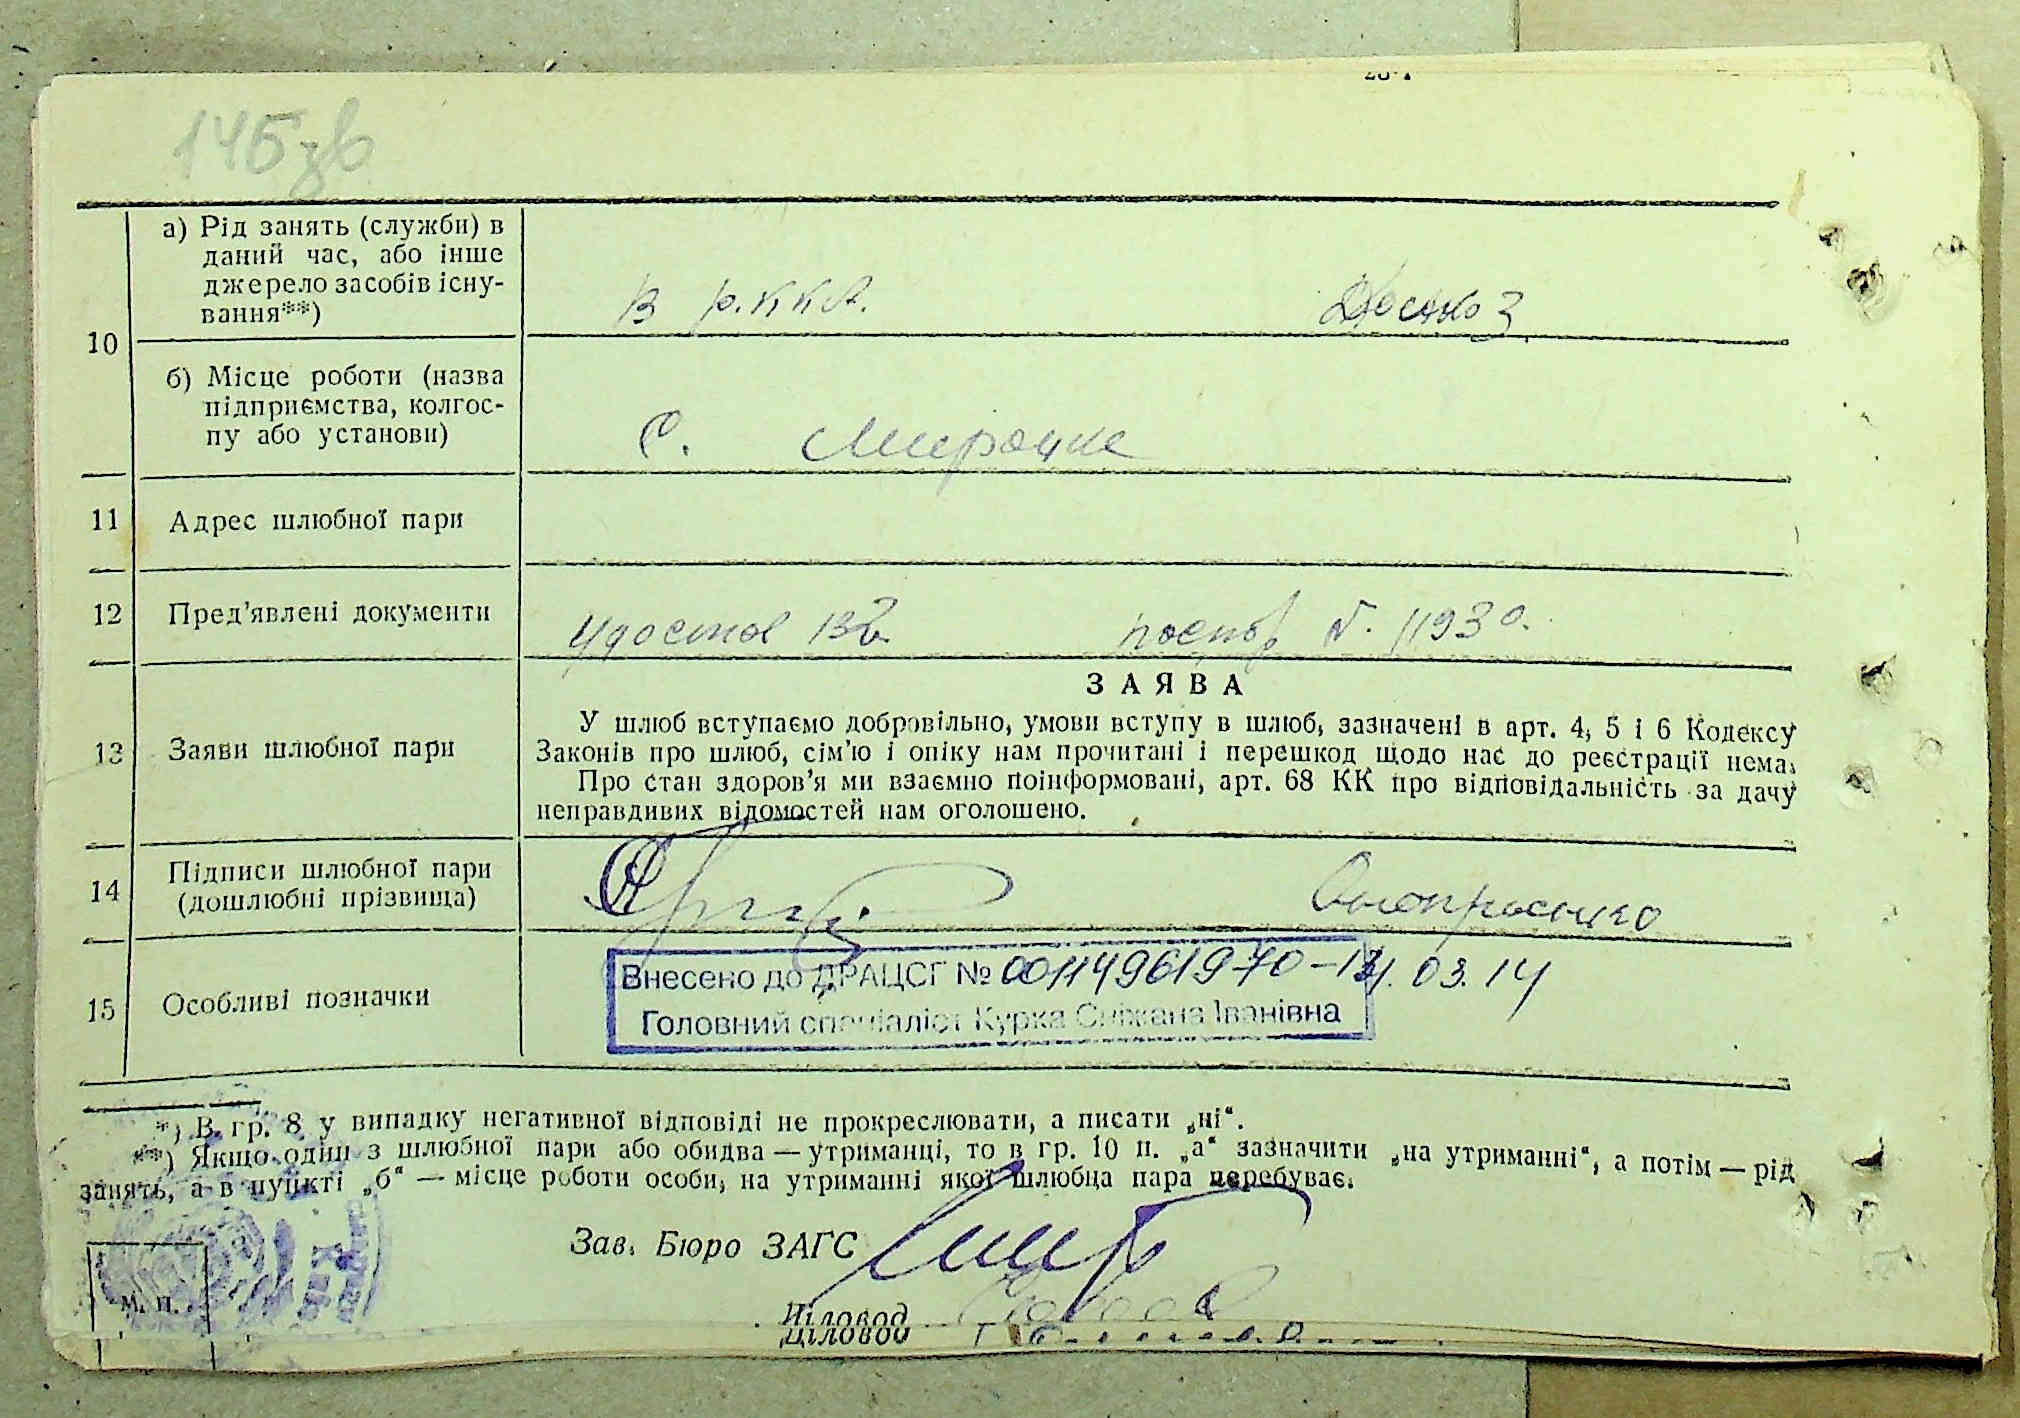 145 зв
10
а) Рід занять (служби) в
даний час, або інше
джерело засобів існу-
вання**)
В р.ККА.
б) Місце роботи (назва
підприємства, колгос-
пу або установи)
С. Мироцке
11 Адрес шлюбної пари
12 Пред’явлені документи
Удостов 132 паспор N. 11930.
13 Заяви шлюбної пари
ЗАЯВА
У шлюб вступаємо добровільно, умови вступу в шлюб, зазначені в арт. 4, 5 і 6 Кодексу
Законів про шлюб, сім’ю і опіку нам прочитані і перешкод щодо нас до реєстрації нема.
Про стан здоров’я ми взаємно поінформовані, арт. 68 КК про відповідальність за дачу
неправдивих відомостей нам оголошено.
14 Підписи шлюбної пари
(дошлюбні прізвища)
15 Особливі позначки
Внесено до ДРАЦСГ № 00114961970-
03.14
Головний спеціаліст Курка Сніжана Іванівна
*) В гр. 8 у випадку негативної відповіді не прокреслювати, а писати „ні“.
**) Якщо один з шлюбної пари або обидва — утриманці, то в гр. 10 п. „а“ зазначити „на утриманні“, а потім — рід
занять, а в пункті „б“ — місце роботи особи, на утриманні якої шлюбна пара перебуває.
Зав. Бюро ЗАГС
М. П.
Діловод
Діловод